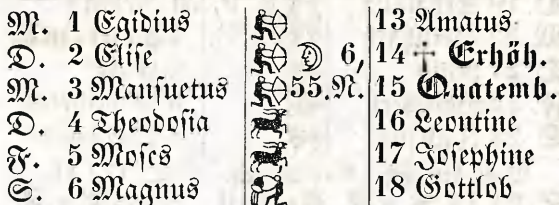 M. 1 Egidius 13 Amatus
D. 2 Elise 6, 14 † Erhöh.
M. 3 Mansuetus 55.N. 15 Quatemb.
D. 4 Theodosia 16 Leontine
F. 5 Moses 17 Josephine
S. 6 Magnus 18 Gottlob